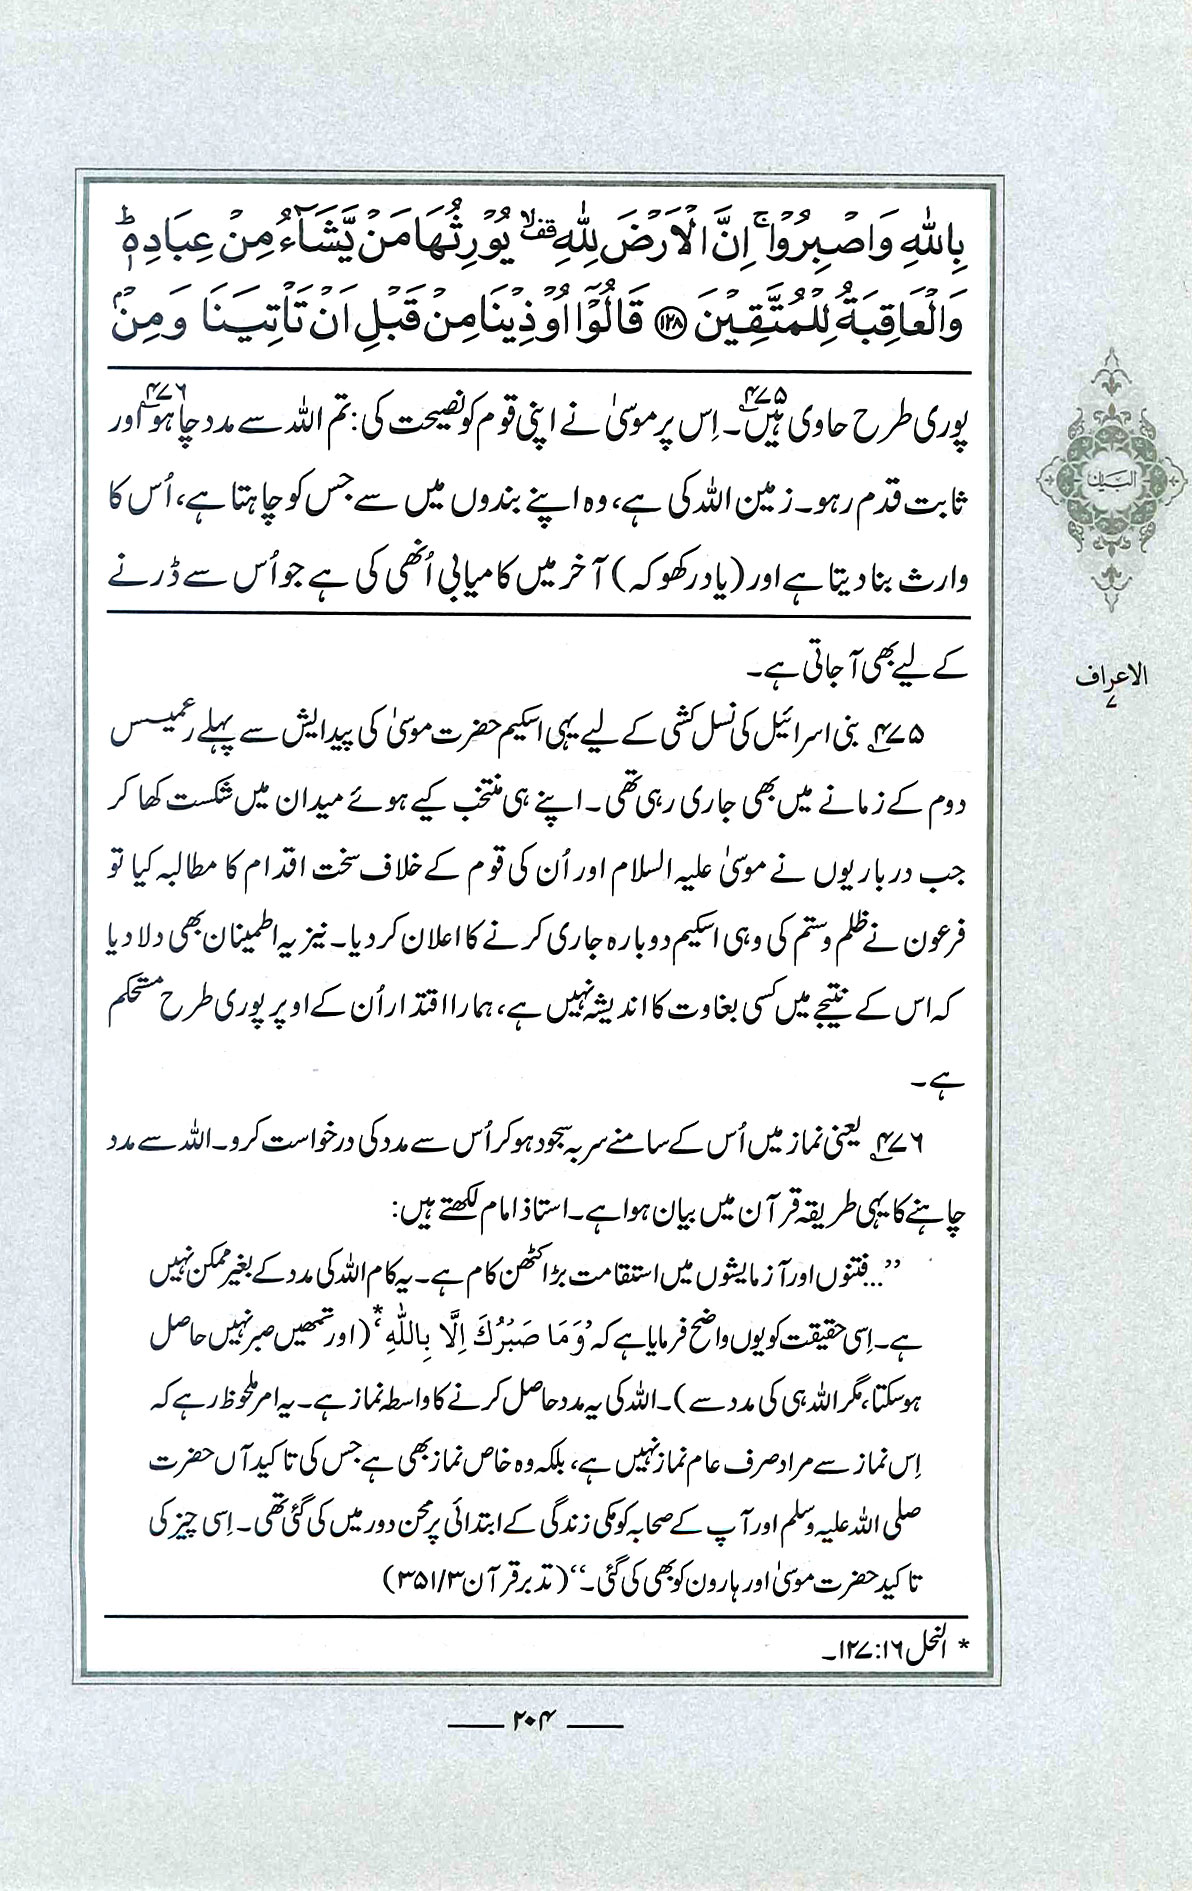 بِاللّٰهِ وَاصْبِرُوْا ۚ اِنَّ الْاَرْضَ لِلّٰهِ ۙقف يُوْرِثُهَا مَنْ يَّشَآءُ مِنْ عِبَادِهٖ ؕ
وَالْعَاقِبَةُ لِلْمُتَّقِيْنَ ﴿۱۲۸﴾ قَالُوْٓا اُوْذِيْنَا مِنْ قَبْلِ اَنْ تَاْتِيَنَا وَمِنْۢ
پوری طرح حاوی ہیں۔۴۷۵ اِس پر موسیٰ نے اپنی قوم کو نصیحت کی: تم اللہ سے مدد چاہو۴۷۶ اور
ثابت قدم رہو۔ زمین اللہ کی ہے، وہ اپنے بندوں میں سے جس کو چاہتا ہے، اُس کا
وارث بنا دیتا ہے اور (یاد رکھو کہ) آخر میں کامیابی اُنھی کی ہے جو اُس سے ڈرنے
کے لیے بھی آ جاتی ہے۔
۴۷۵ بنی اسرائیل کی نسل کشی کے لیے یہی اسکیم حضرت موسیٰ کی پیدایش سے پہلے رعمیسس
دوم کے زمانے میں بھی جاری رہی تھی۔ اپنے ہی منتخب کیے ہوئے میدان میں شکست کھا کر
جب درباریوں نے موسیٰ علیہ السلام اور اُن کی قوم کے خلاف سخت اقدام کا مطالبہ کیا تو
فرعون نے ظلم و ستم کی وہی اسکیم دوبارہ جاری کرنے کا اعلان کر دیا۔ نیز یہ اطمینان بھی دلا دیا
کہ اس کے نتیجے میں کسی بغاوت کا اندیشہ نہیں ہے، ہمارا اقتدار اُن کے اوپر پوری طرح مستحکم
ہے۔
۴۷۶ یعنی نماز میں اُس کے سامنے سر بہ سجود ہو کر اُس سے مدد کی درخواست کرو۔ اللہ سے مدد
چاہنے کا یہی طریقہ قرآن میں بیان ہوا ہے۔ استاذ امام لکھتے ہیں:
”...فتنوں اور آزمایشوں میں استقامت بڑا کٹھن کام ہے۔ یہ کام اللہ کی مدد کے بغیر ممکن نہیں
ہے۔ اِسی حقیقت کو یوں واضح فرمایا ہے کہ ’وَمَا صَبْرُكَ اِلَّا بِاللّٰهِ‘* (اور تمھیں صبر نہیں حاصل
ہو سکتا، مگر اللہ ہی کی مدد سے)۔ اللہ کی یہ مدد حاصل کرنے کا واسطہ نماز ہے۔ یہ امر ملحوظ رہے کہ
اِس نماز سے مراد صرف عام نماز نہیں ہے، بلکہ وہ خاص نماز بھی ہے جس کی تاکید آں حضرت
صلی اللہ علیہ وسلم اور آپ کے صحابہ کو مکی زندگی کے ابتدائی پر محن دور میں کی گئی تھی۔ اِسی چیز کی
تاکید حضرت موسیٰ اور ہارون کو بھی کی گئی۔“ (تدبر قرآن ۳/ ۳۵۱)
* النحل ۱۶: ۱۲۷۔
۲۰۴
البیان
الاعراف
۷